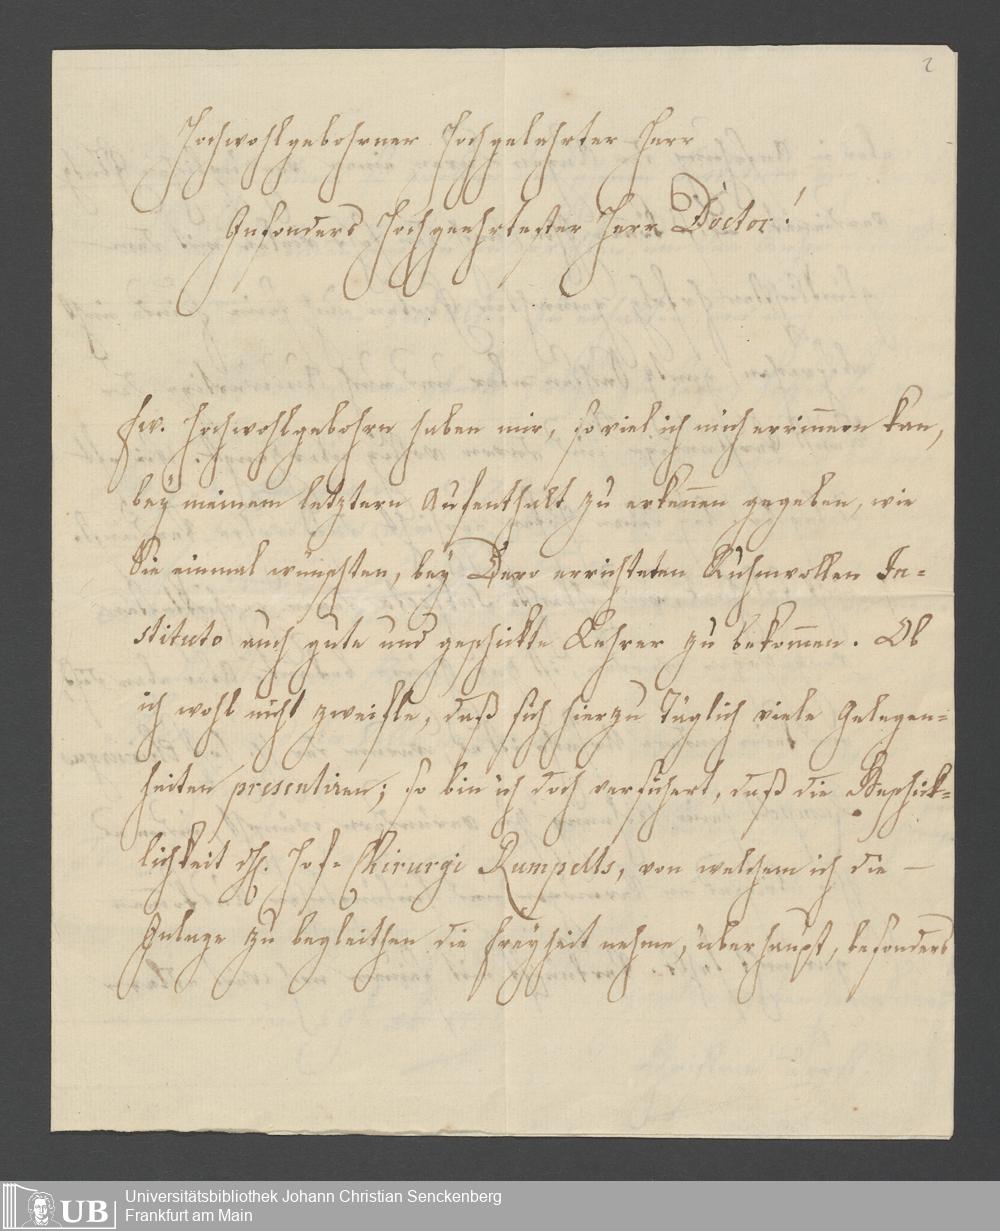 2
Hochwohlgebohrner Hochgelehrter Herr
Insonders Hochgeehrtester Herr Doctor!
Ew. Hochwohlgebohrn haben mir, so viel ich mich errinnern kan,
beÿ meinem letztern Aufenthalt zu erkennen gegeben, wie
Sie einmal wünschten, beÿ Dero errichteten Ruhmvollen In=
stituto auch gute und geschickte Lehrer zu bekommen. Ob
ich wohl nicht zweifle, daß sich hierzu täglich viele Gelegen=
heiten presentiren; so bin ich doch versichert, daß die Geschick=
lichkeit dH. Hof= Chirurgi Rumpelts, von welchem ich die —
Anlage zu begleithen die Freÿheit nehme, überhaupt, besonders
UB
Universitätsbibliothek Johann Christian Senckenberg
Frankfurt am Main